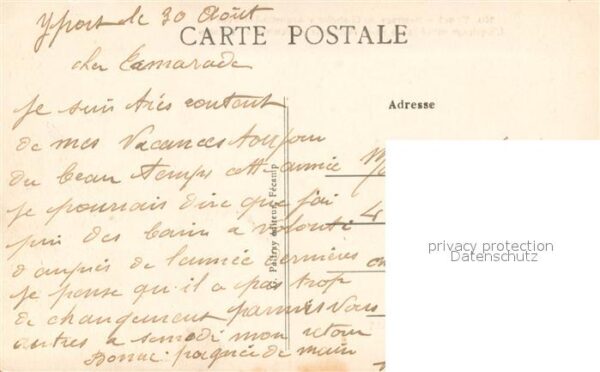 Yport le 30 Août
CARTE POSTALE
cher Camarade
Adresse
je suis très content
de mes Vacances toujour
du beau temps cett année
je pourrais dire que j'ai
pri des bain a volonté
d'auprès de l'année dernières
je pense qu'il a pas trop
de changement parmis Vous
autres a samedi mon retour
Bonne poignée de main
éditeur, Fécamp
privacy protection
Datenschutz